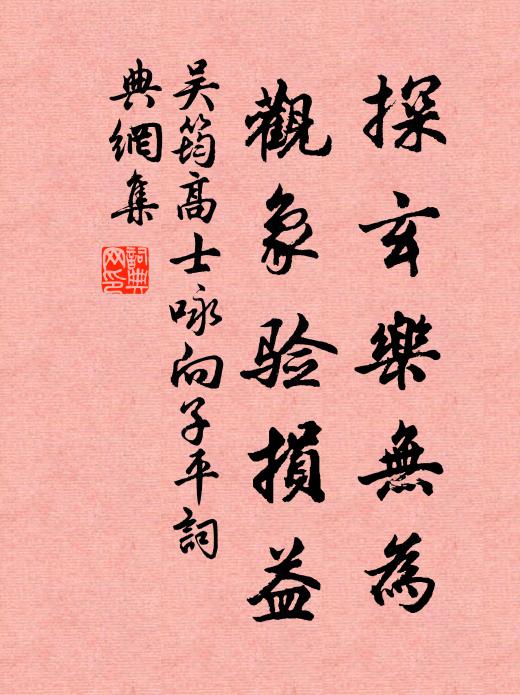 探玄樂無為
觀象验損益
吳筠高士咏向子平詞
典網集
詞典
网印